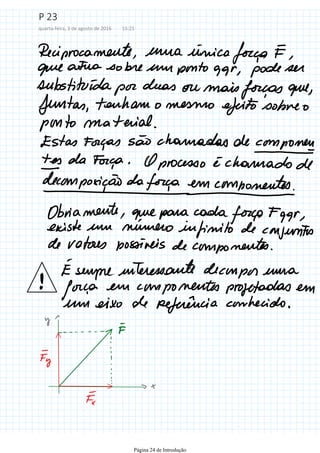 P 23
quarta-feira, 3 de agosto de 2016 15:21
Reciprocamente, uma única força F̄,
que atua sobre um ponto qqr, pode ser
substituída por duas ou mais forças que,
juntas, tenham o mesmo efeito sobre o
ponto material.
Estas Forças são chamadas de componen
tes da Força. O processo é chamado de
decomposição da força em componentes.
Obviamente, que para cada força F qqr,
existe um número infinito de conjuntos
de valores possíveis de componentes.
! É sempre interessante decompor uma
força em componentes projetadas em
um eixo de referência conhecido.
y
F̄
F̄y
x
F̄x
Página 24 de Introdução